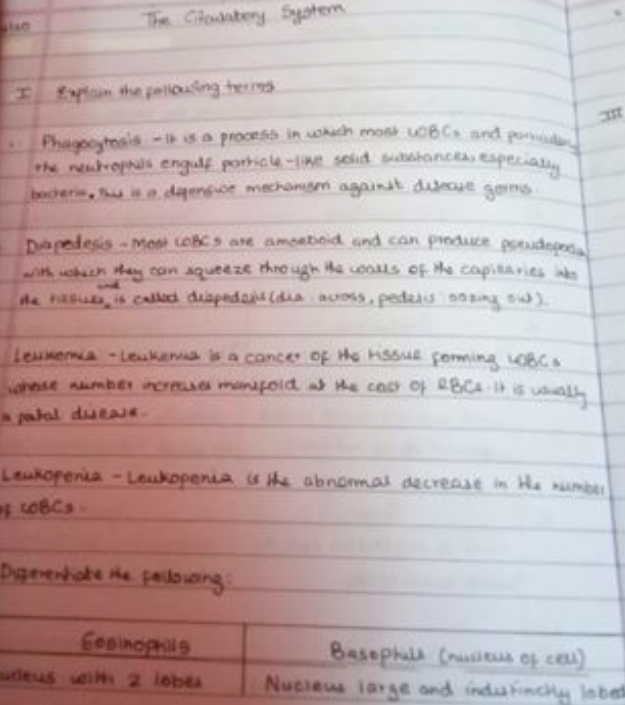 The Circulatory System
I Explain the following terms
III
Phagocytosis - It is a process in which most WBCs and
the neutrophils engulf particle-like solid substances, especially
bacteria, this is a defensive mechanism against disease germs.
Diapedesis - Most WBCs are amoeboid and can produce pseudopodia
with which they can squeeze through the walls of the capillaries into
the tissues, and is called diapedesis (dia : across, pedesis : oozing out).
Leukemia - Leukemia is a cancer of the tissue forming WBCs
whose number increases manifold at the cost of RBCs. It is usually
a fatal disease.
Leukopenia - Leukopenia is the abnormal decrease in the number
of WBCs.
Differentiate the following:
Eosinophils
Basophils (nucleus of cell)
nucleus with 2 lobes
Nucleus large and indistinctly lobed